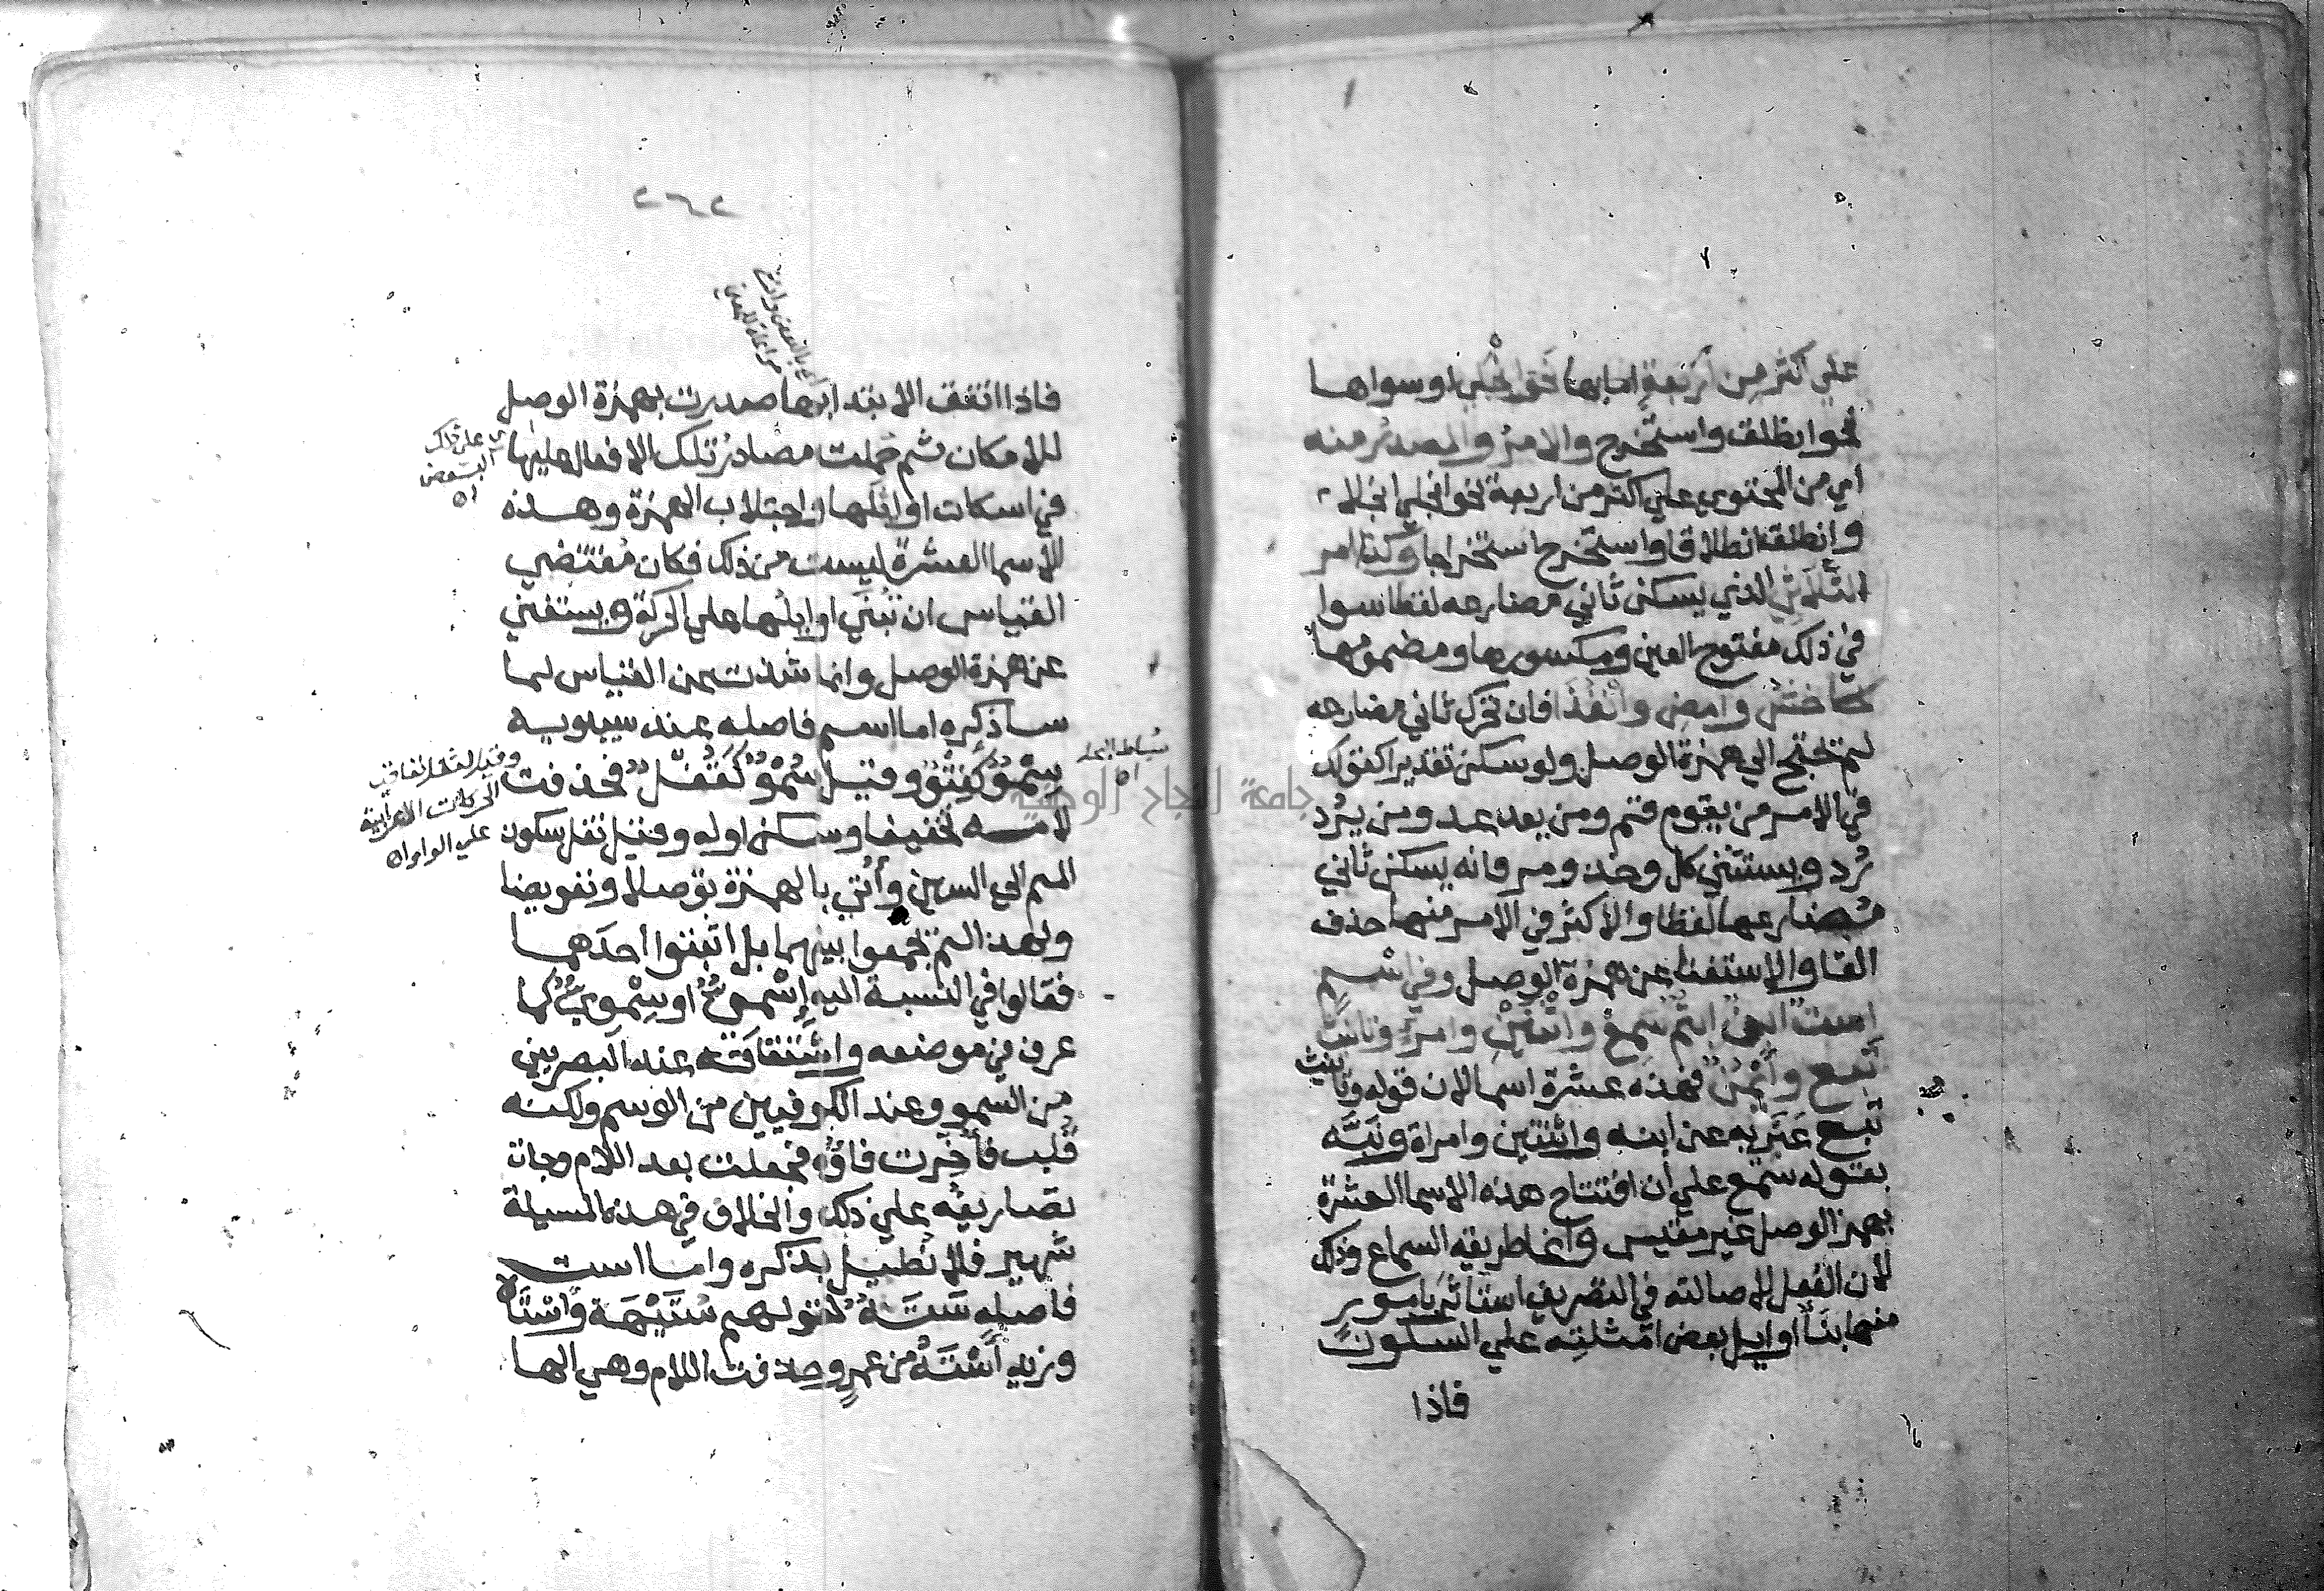 على اكثر من اربعة اما بها نحو انجلى او سواها
نحو انطلق واستخرج والامر والمصدر منه
اي من المحتوي علي اكثر من اربعة نحو انجلي انجلاء
وانطلق انطلاقا واستخرج استخراجا وكذا امر
الثلاثي الذي يسكن ثاني مضارعه لفظا سوا
في ذلك مفتوح العين ومكسورها ومضمومها
كاخش وامض وانفذا فان تحرك ثاني مضارعه
لم تحتج الي همزة الوصل ولو سكن تقديرا كقولك
في الامر من يقوم قم ومن يعد عد ومن يرد
رد ويستثني كل وخذ ومر فانه يسكن ثاني
مضارعها لفظا والاكثر في الامر منها حذف
الفا والاستغنا عن همزة الوصل وفي اسم
است ابن ابنم سمع واثنين وامرء وتانيث
تبع وايمن فهذه عشرة اسما لان قوله وتانيث
تبع عبر به عن ابنه واثنتين وامراة ونبه
بقوله سمع علي ان افتتاح هذه الاسما العشرة
بهمز الوصل غير مقيس وانما طريقه السماع وذلك
لان الفعل لاصالته في التصريف استاثر بامور
منها بنا اوايل بعض امثلته علي السكون
فاذا
٢٦٢
فاذا اتفق الابتدا بها صدرت بهمزة الوصل
للامكان ثم حملت مصادر تلك الافعال عليها
في اسكان اوائلها واجتلاب الهمزة وهذه
الاسما العشرة ليست من ذلك فكان مقتضي
القياس ان تبنى اوايلها علي الحركة ويستغني
عن همزة الوصل وانما شذت عن القياس لما
ساذكره اما اسم فاصله عند سيبويه
سمو كقنو وقيل سمو كقفل فحذفت
لامه تخفيفا وسكن اوله وقيل نقل سكون
الميم الي السين وأتي بالهمزة توصلا وتعويضا
ولهذا لم يجمعوا بينهما بل اثبتوا احدهما
فقالوا في النسبة اليه اسمي او سموي كما
عرف في موضعه واشتقاقه عند البصريين
من السمو وعند الكوفيين من الوسم ولكنه
قلب فأخرت فاؤه فجعلت بعد اللام وجات
تصاريفه علي ذلك والخلاف في هذه المسيلة
شهير فلا نطيل بذكره واما است
فاصله سته لقولهم ستيهة واستاه
وزيد أسته من عمرو حذفت اللام وهي الها
علي ذلك البعض اه
وقيل لثقل تعاقب
الحركات الاعرابية
علي الواو اه
جامعة النجاح الوطنية